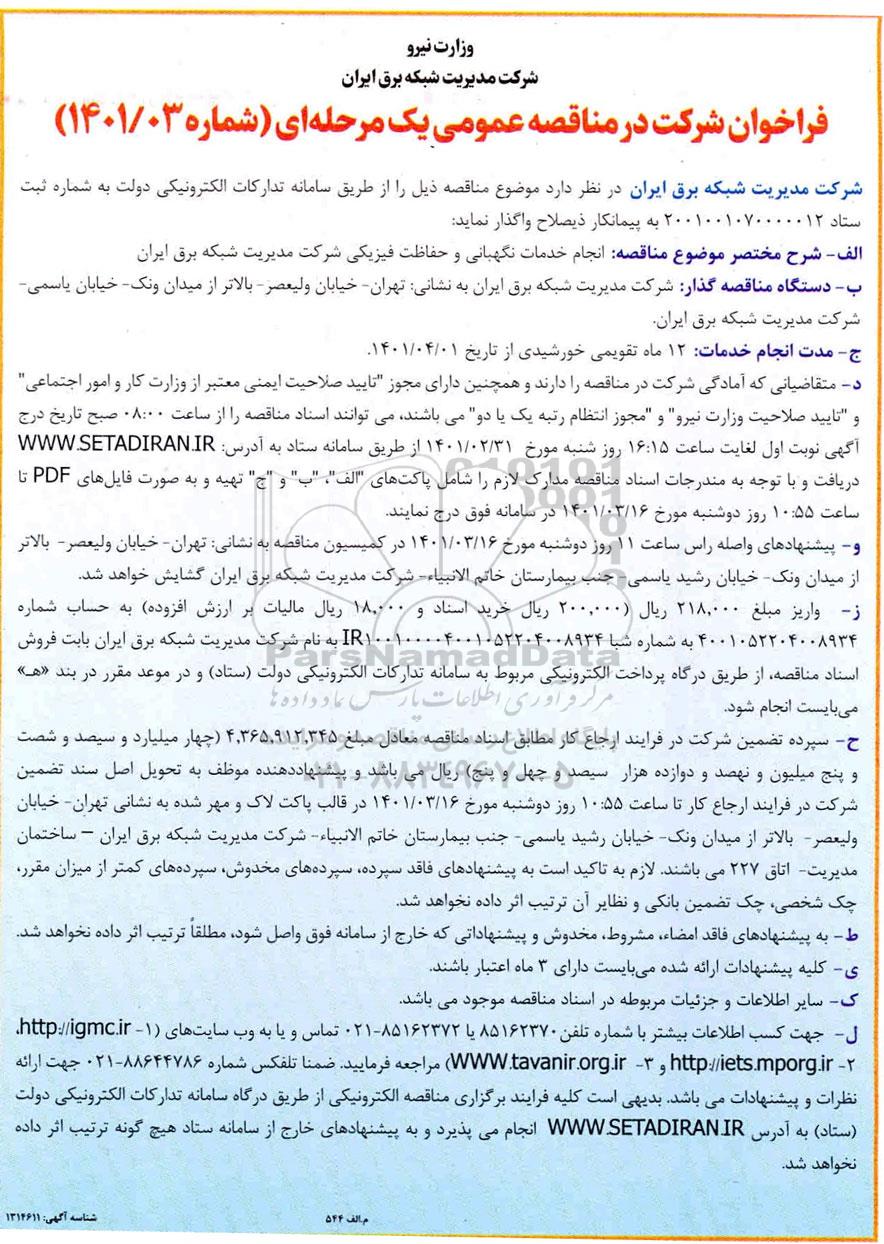 وزارت نیرو
شرکت مدیریت شبکه برق ایران
فراخوان شرکت در مناقصه عمومی یک مرحله‌ای (شماره ۱۴۰۱/۰۳)
شرکت مدیریت شبکه برق ایران در نظر دارد موضوع مناقصه ذیل را از طریق سامانه تدارکات الکترونیکی دولت به شماره ثبت
ستاد ۲۰۰۱۰۰۱۰۷۰۰۰۰۰۱۲ به پیمانکار ذیصلاح واگذار نماید:
الف- شرح مختصر موضوع مناقصه: انجام خدمات نگهبانی و حفاظت فیزیکی شرکت مدیریت شبکه برق ایران
ب- دستگاه مناقصه گذار: شرکت مدیریت شبکه برق ایران به نشانی: تهران- خیابان ولیعصر- بالاتر از میدان ونک- خیابان یاسمی-
شرکت مدیریت شبکه برق ایران.
ج- مدت انجام خدمات: ۱۲ ماه تقویمی خورشیدی از تاریخ ۱۴۰۱/۰۴/۰۱.
د- متقاضیانی که آمادگی شرکت در مناقصه را دارند و همچنین دارای مجوز "تایید صلاحیت ایمنی معتبر از وزارت کار و امور اجتماعی"
و "تایید صلاحیت وزارت نیرو" و "مجوز انتظام رتبه یک یا دو" می باشند، می توانند اسناد مناقصه را از ساعت ۰۸:۰۰ صبح تاریخ درج
آگهی نوبت اول لغایت ساعت ۱۶:۱۵ روز شنبه مورخ ۱۴۰۱/۰۲/۳۱ از طریق سامانه ستاد به آدرس: WWW.SETADIRAN.IR
دریافت و با توجه به مندرجات اسناد مناقصه مدارک لازم را شامل پاکت‌های "الف"، "ب" و "ج" تهیه و به صورت فایل‌های PDF تا
ساعت ۱۰:۵۵ روز دوشنبه مورخ ۱۴۰۱/۰۳/۱۶ در سامانه فوق درج نمایند.
و- پیشنهادهای واصله راس ساعت ۱۱ روز دوشنبه مورخ ۱۴۰۱/۰۳/۱۶ در کمیسیون مناقصه به نشانی: تهران- خیابان ولیعصر- بالاتر
از میدان ونک- خیابان رشید یاسمی- جنب بیمارستان خاتم الانبیاء- شرکت مدیریت شبکه برق ایران گشایش خواهد شد.
ز- واریز مبلغ ۲۱۸,۰۰۰ ریال (۲۰۰,۰۰۰ ریال خرید اسناد و ۱۸,۰۰۰ ریال مالیات بر ارزش افزوده) به حساب شماره
۴۰۰۱۰۵۲۲۰۴۰۰۸۹۳۴ به شماره شبا IR۱۰۰۱۰۰۰۰۴۰۰۱۰۵۲۲۰۴۰۰۸۹۳۴ به نام شرکت مدیریت شبکه برق ایران بابت فروش
ParsNamadData
اسناد مناقصه، از طریق درگاه پرداخت الکترونیکی مربوط به سامانه تدارکات الکترونیکی دولت (ستاد) و در موعد مقرر در بند «هـ»
مرکز فرآوری اطلاعات پارس نماد داده‌ها
می‌بایست انجام شود.
ح- سپرده تضمین شرکت در فرایند ارجاع کار مطابق اسناد مناقصه معادل مبلغ ۴,۳۶۵,۹۱۲,۳۴۵ (چهار میلیارد و سیصد و شصت
و پنج میلیون و نهصد و دوازده هزار سیصد و چهل و پنج) ریال می باشد و پیشنهاددهنده موظف به تحویل اصل سند تضمین
۰۲۱-۸۸۳۴۹۶۷۰-۵
شرکت در فرایند ارجاع کار تا ساعت ۱۰:۵۵ روز دوشنبه مورخ ۱۴۰۱/۰۳/۱۶ در قالب پاکت لاک و مهر شده به نشانی تهران- خیابان
ولیعصر- بالاتر از میدان ونک- خیابان رشید یاسمی- جنب بیمارستان خاتم الانبیاء- شرکت مدیریت شبکه برق ایران – ساختمان
مدیریت- اتاق ۲۲۷ می باشند. لازم به تاکید است به پیشنهادهای فاقد سپرده، سپرده‌های مخدوش، سپرده‌های کمتر از میزان مقرر،
چک شخصی، چک تضمین بانکی و نظایر آن ترتیب اثر داده نخواهد شد.
ط- به پیشنهادهای فاقد امضاء، مشروط، مخدوش و پیشنهاداتی که خارج از سامانه فوق واصل شود، مطلقاً ترتیب اثر داده نخواهد شد.
ی- کلیه پیشنهادات ارائه شده می‌بایست دارای ۳ ماه اعتبار باشند.
ک- سایر اطلاعات و جزئیات مربوطه در اسناد مناقصه موجود می باشد.
ل- جهت کسب اطلاعات بیشتر با شماره تلفن ۸۵۱۶۲۳۷۰ یا ۸۵۱۶۲۳۷۲-۰۲۱ تماس و یا به وب سایت‌های (۱- http://igmc.ir،
۲- http://iets.mporg.ir و ۳- WWW.tavanir.org.ir) مراجعه فرمایید. ضمنا تلفکس شماره ۸۸۶۴۴۷۸۶-۰۲۱ جهت ارائه
نظرات و پیشنهادات می باشد. بدیهی است کلیه فرایند برگزاری مناقصه الکترونیکی از طریق درگاه سامانه تدارکات الکترونیکی دولت
(ستاد) به آدرس WWW.SETADIRAN.IR انجام می پذیرد و به پیشنهادهای خارج از سامانه ستاد هیچ گونه ترتیب اثر داده
نخواهد شد.
م.الف ۵۴۴
شناسه آگهی: ۱۳۱۴۶۱۱